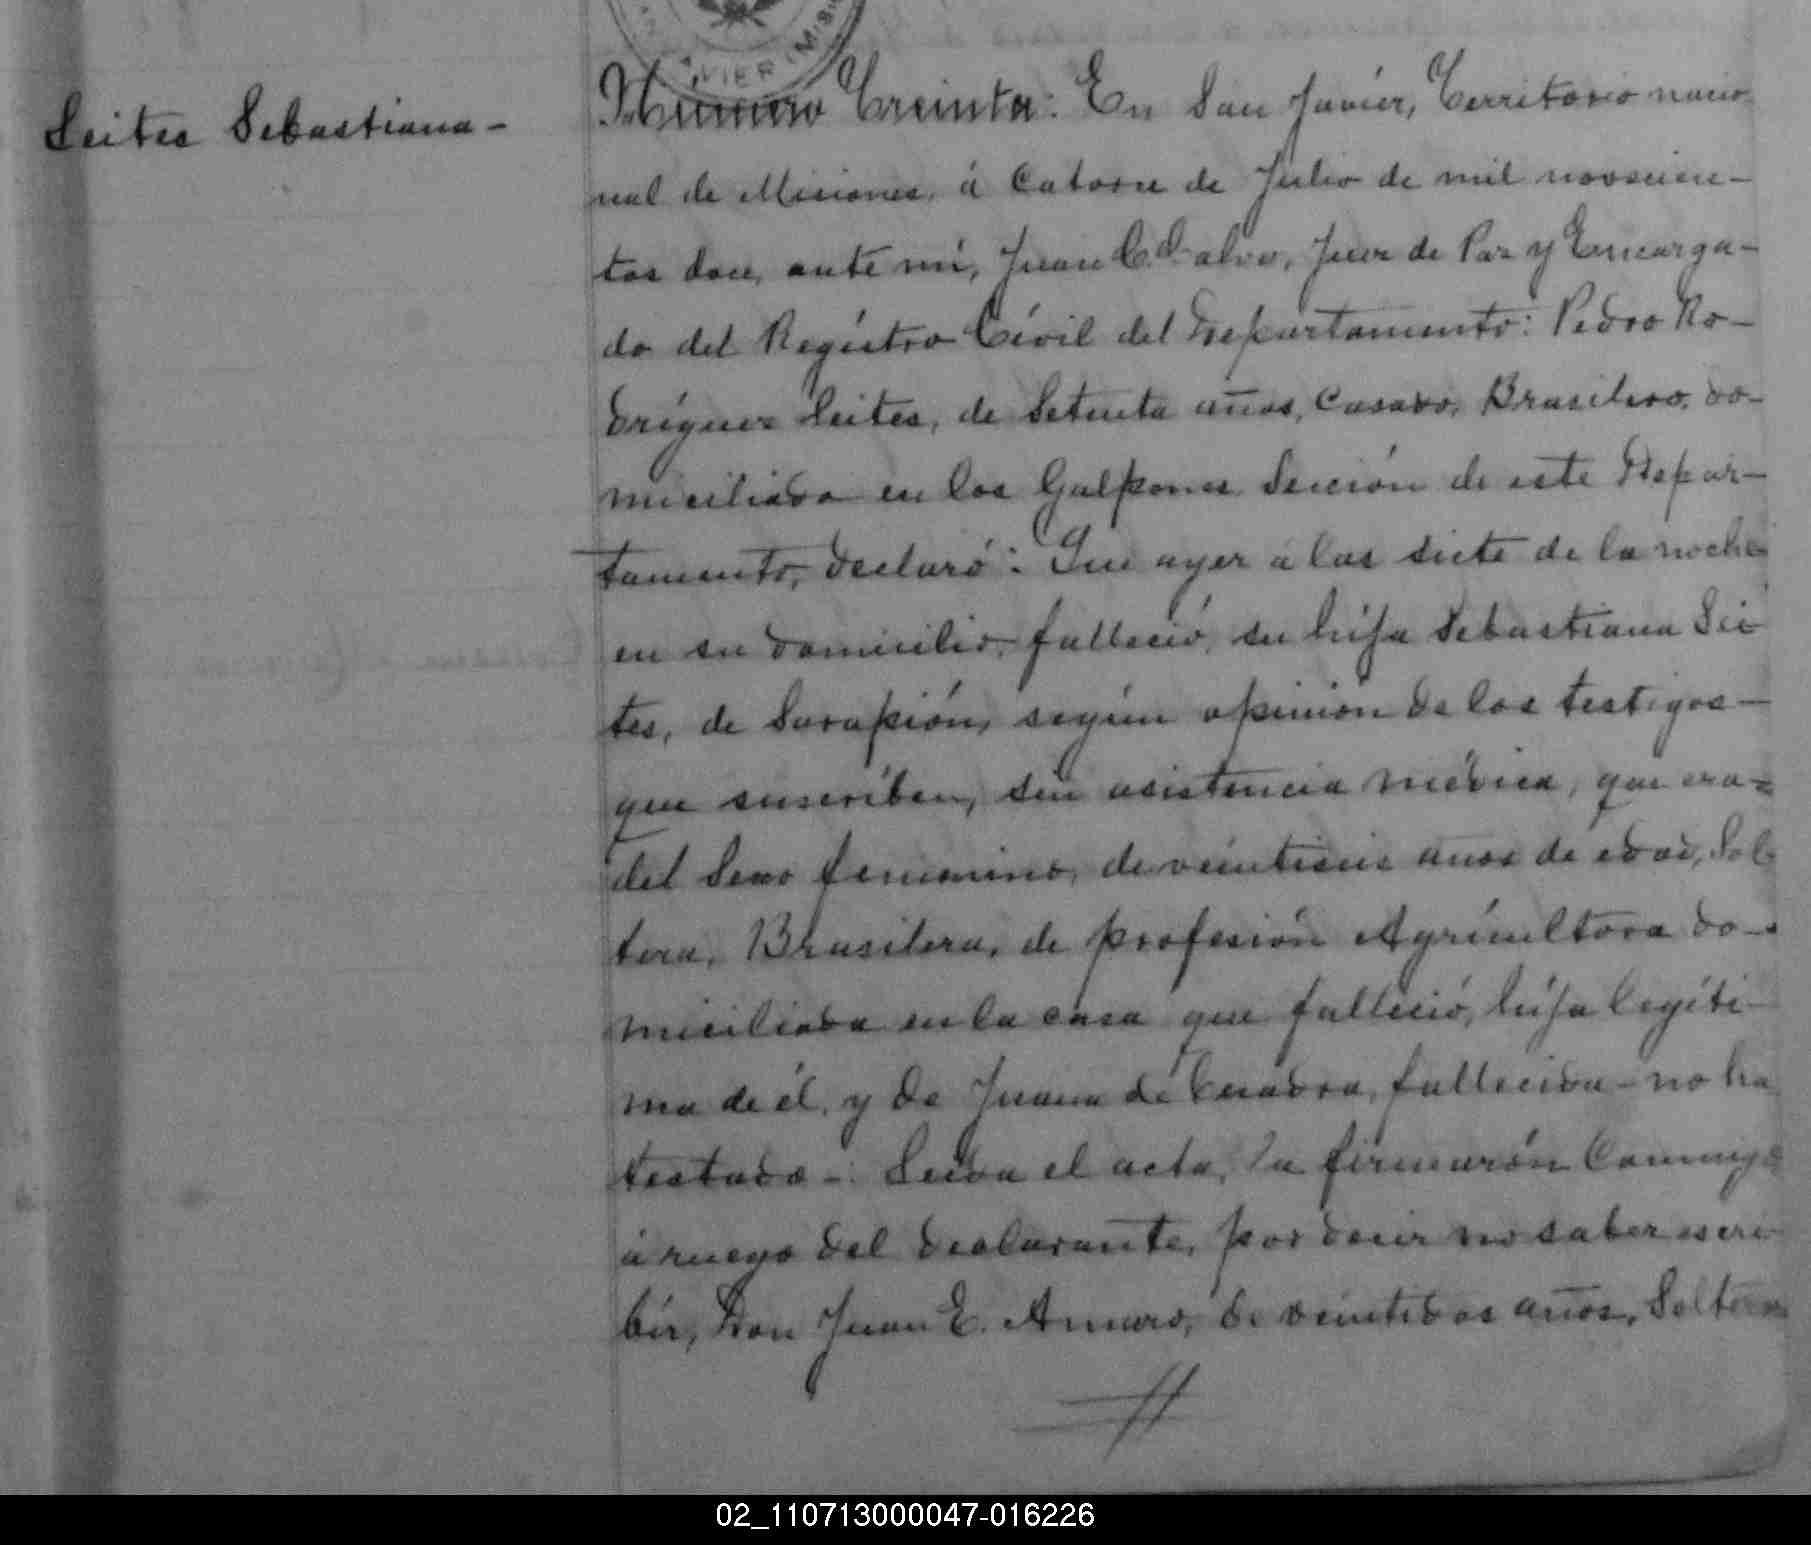 Leites Sebastiana -
AVIER (MIS
Número Treinta: En San Javier, Territorio nacio
nal de Misiones, á Catorce de Julio de mil novecien-
tos doce, ante mí, Juan C. Calvo, Juez de Paz y Encarga-
do del Registro Civil del Departamento: Pedro Ro-
dríguez Leites, de Setenta años, Casado, Brasilero, do-
miciliado en los Galpones Sección de este Depar-
tamento, declaró: Que ayer á las siete de la noche
en su domicilio, falleció, su hija Sebastiana Lei
tes, de Sarapión, según opinión de los testigos-
que suscriben, sin asistencia médica, que era-
del Sexo femenino, de veintiseis anos de edad, Sol
tera, Brasilera, de profesión Agricultora do-
miciliada en la casa que falleció, hija legíti-
ma de él, y de Juana de fallecida - no ha
testado -: Leida el acta, la firmarón Conmigo
á ruego del declarante, por decir no saber escri
bir, Don Juan E. Amaro, de veintidos años, Soltero
02_110713000047-016226